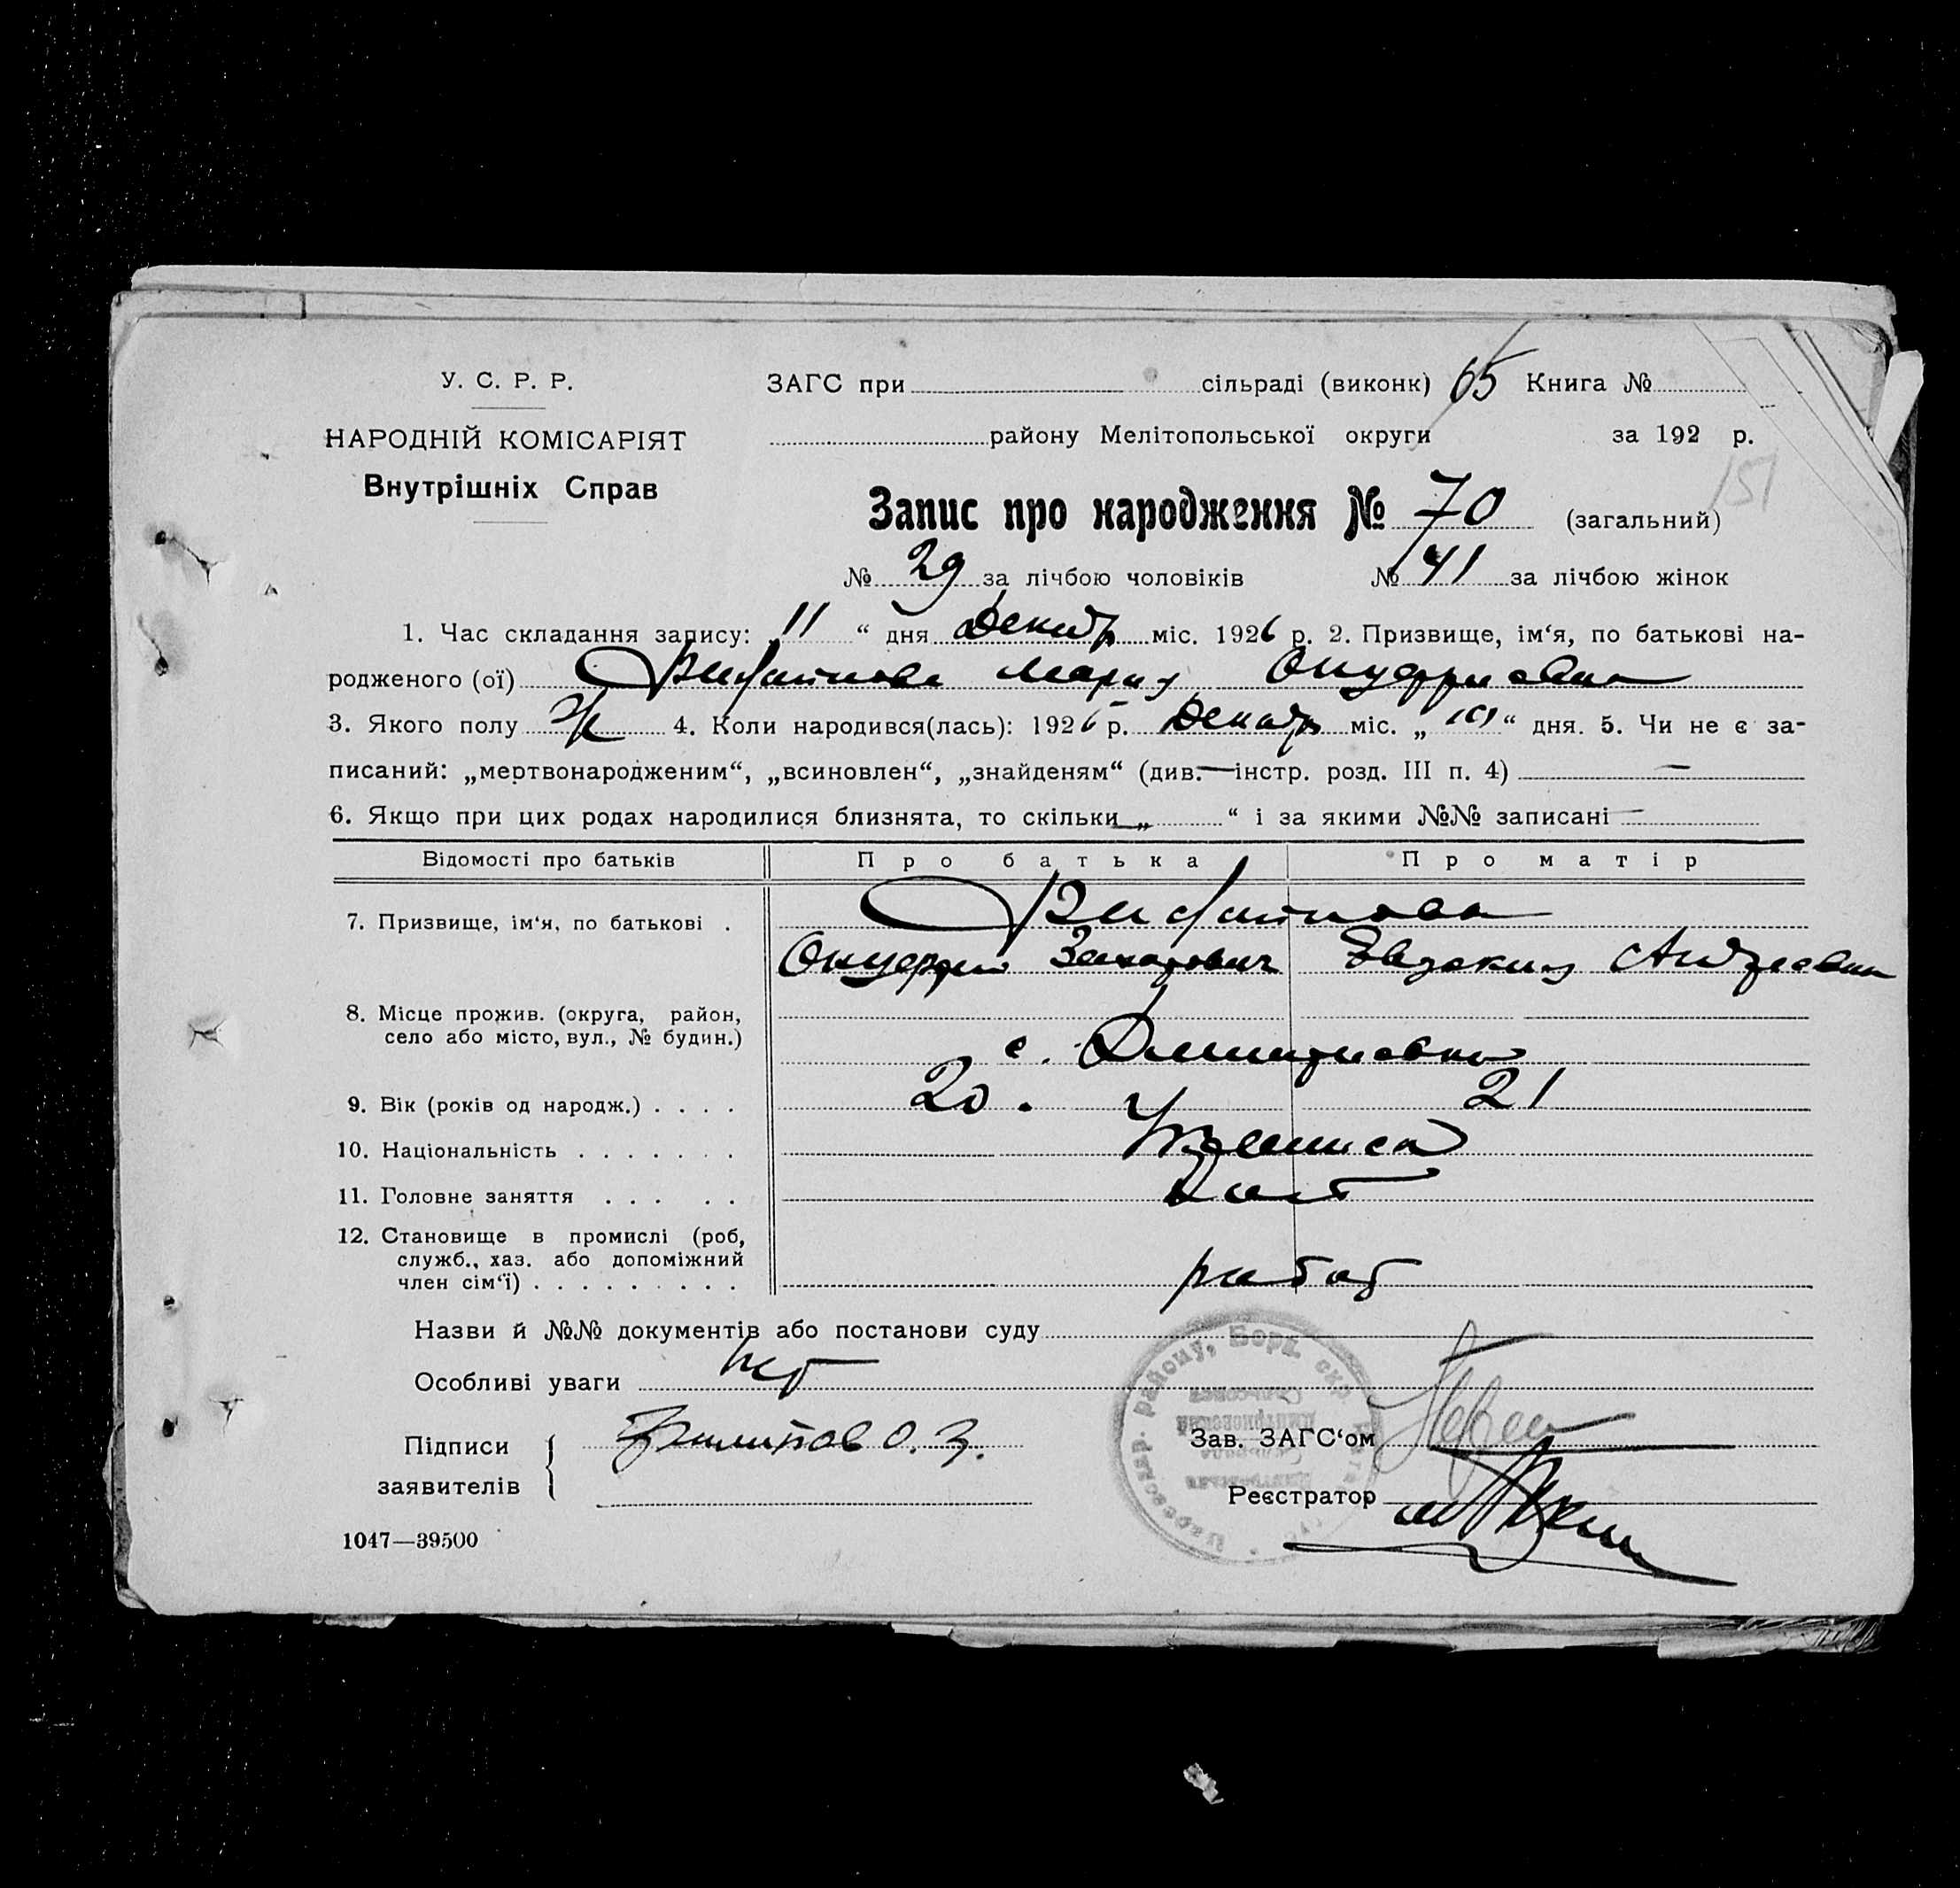 У. С. Р. Р.
НАРОДНІЙ КОМІСАРІЯТ
Внутрішніх Справ
ЗАГС при сільраді (виконк) 65 Книга №
району Мелітопольської округи за 192 р.
151
Запис про народження № 70 (загальний)
№ 29 за лічбою чоловіків № 41 за лічбою жінок
1. Час складання запису: „11“ дня Декабр міс. 1926 р. 2. Призвище, ім‘я, по батькові на-
родженого (ої) Мария Онуфриевна
3. Якого полу Ж 4. Коли народився(лась): 1926 р. Декабр міс. „ “ дня. 5. Чи не є за-
писаний: „мертвонародженим“, „всиновлен“, „знайденям“ (див. інстр. розд. III п. 4) —
6. Якщо при цих родах народилися близнята, то скільки „ “ і за якими №№ записані —
Відомості про батьків Про батька Про матір
7. Призвище, ім‘я, по батькові .
Онуфрий Захарович Евдокия Андреевна
8. Місце прожив. (округа, район,
село або місто, вул., № будин.)
с. Дмитриевка
9. Вік (років од народж.) . . . . 20. 21
10. Національність . . . . . . .
11. Головне заняття . . . . .
12. Становище в промислі (роб,
служб., хаз. або допоміжний
член сім‘ї) . . . . . . . . . работ
Назви й №№ документів або постанови суду
Особливі уваги нет
Підписи
заявителів
Филипов О. З.
Зав. ЗАГС‘ом
Реєстратор
1047—39500